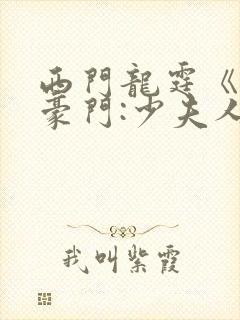 西門龍霆《
豪門:少夫人
我叫紫霞